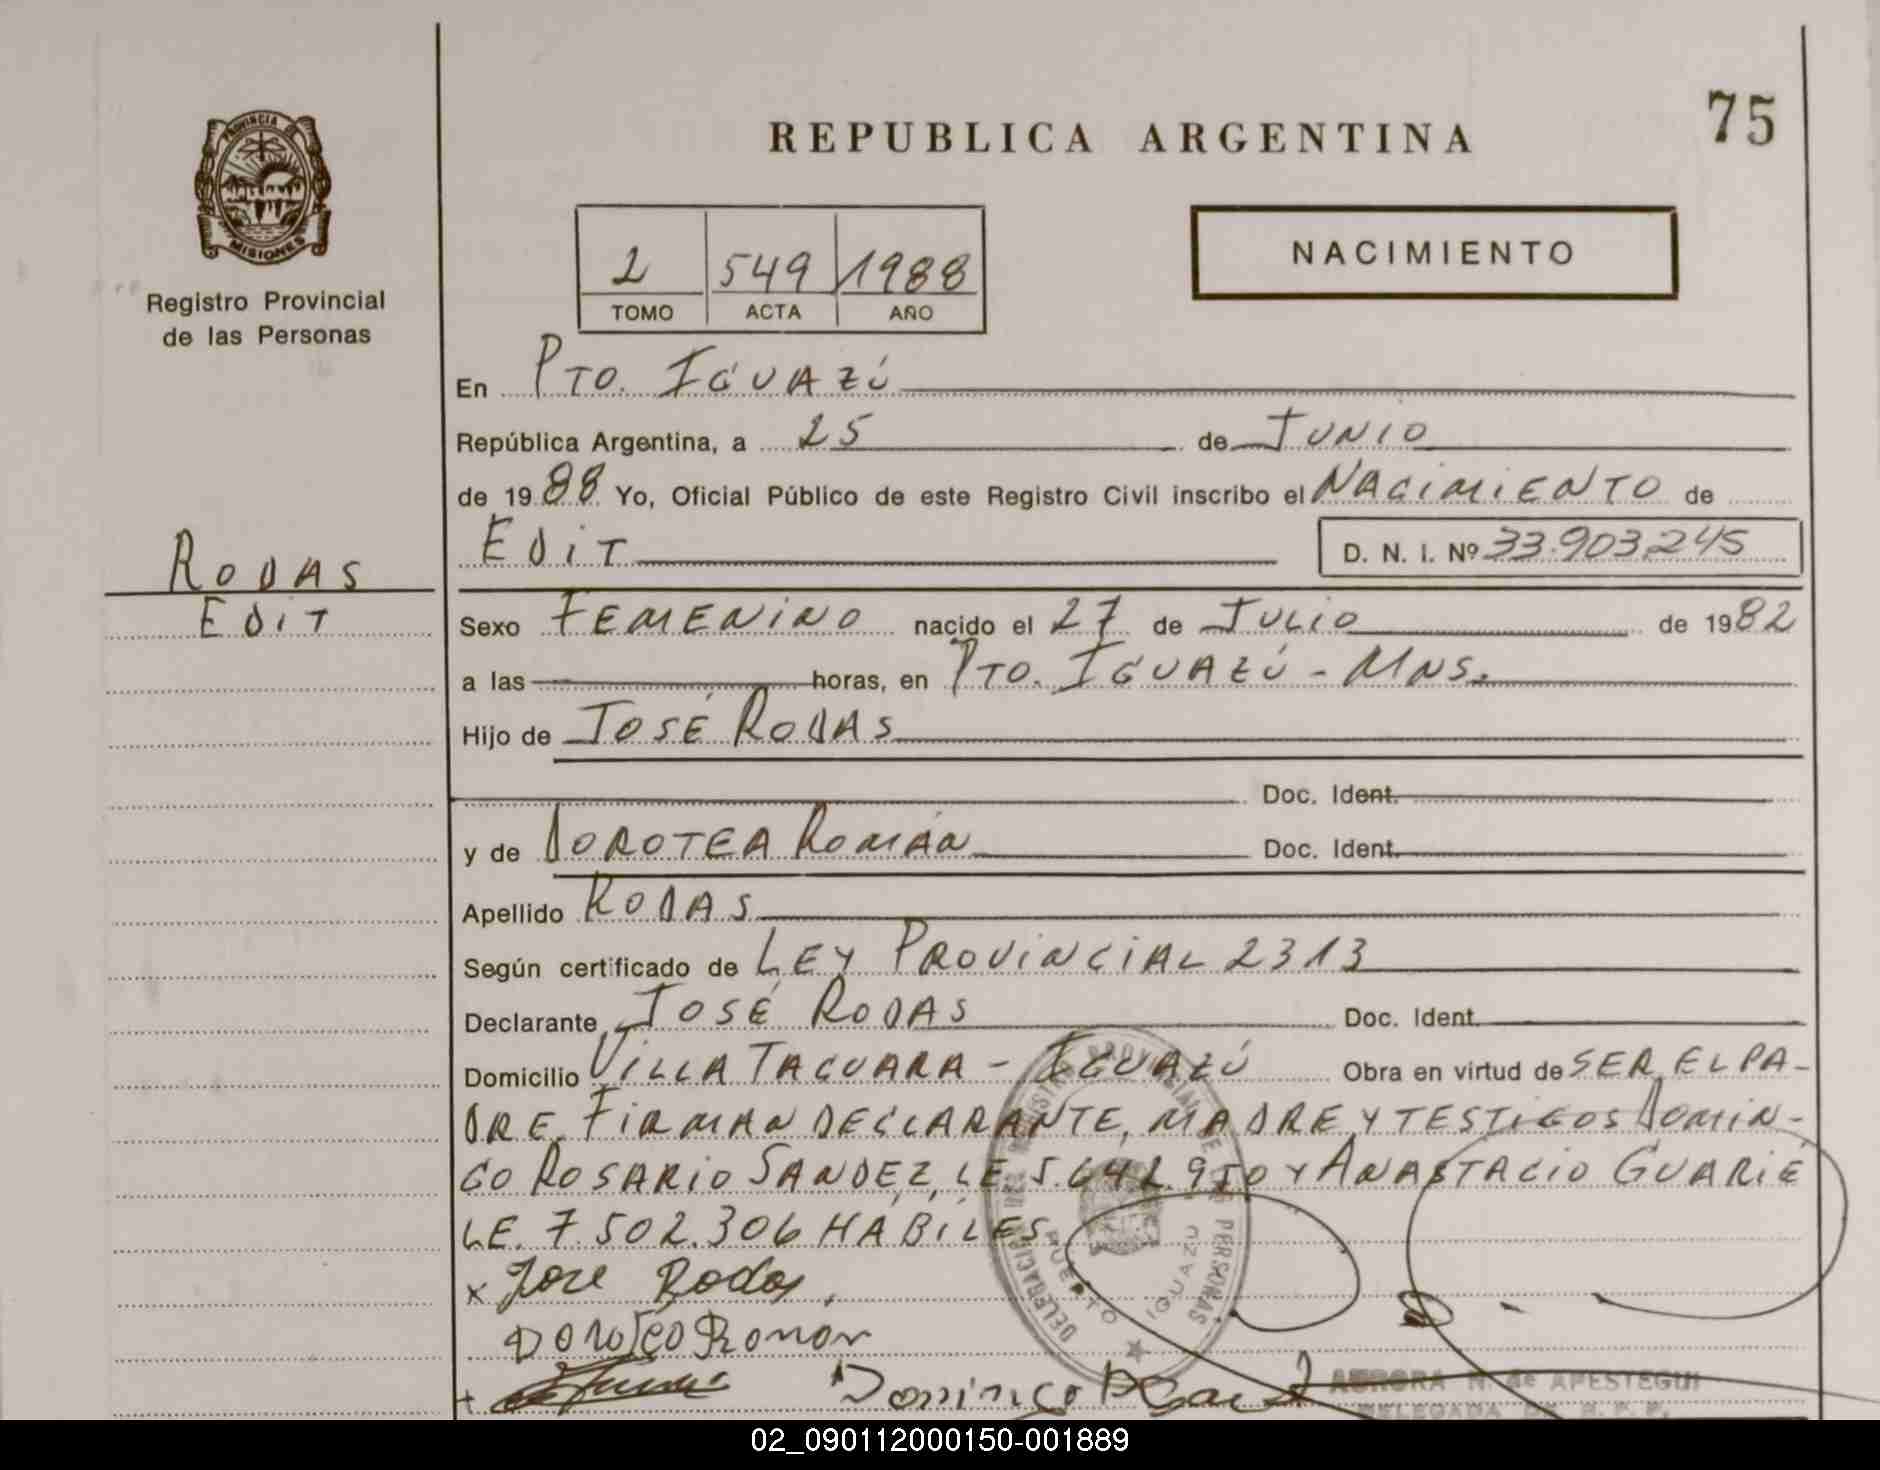 PROVINCIA DE
MISIONES
Registro Provincial
de las Personas
RODAS
EDIT
75
REPUBLICA ARGENTINA
NACIMIENTO
2 549 1988
TOMO ACTA AÑO
En PTO. IGUAZÚ
República Argentina, a 25 de JUNIO
de 1988 Yo, Oficial Público de este Registro Civil inscribo el NACIMIENTO de
EDIT D. N. I. Nº 33.903.245
Sexo FEMENINO nacido el 27 de JULIO de 1982
a las horas, en PTO. IGUAZÚ - MNS.
Hijo de JOSÉ RODAS
Doc. Ident.
y de DOROTEA ROMÁN Doc. Ident.
Apellido RODAS
Según certificado de LEY PROVINCIAL 2313
Declarante JOSÉ RODAS Doc. Ident.
Domicilio VILLA TACUARA - IGUAZÚ Obra en virtud de SER EL PA-
DRE. FIRMAN DECLARANTE, MADRE Y TESTIGOS DOMIN-
GO ROSARIO SANDEZ, LE. 5.642.950 Y ANASTACIO GUARIÉ
LE. 7.502.306 HÁBILES
x Jose Rodas.
Doroteo Roman
Domingo R
AURORA N. de APESTEGUI
DELEGADA DE R. P. P.
DELEGACION DEL REGISTRO PROVINCIAL DE LAS PERSONAS
PUERTO IGUAZU
02_090112000150-001889